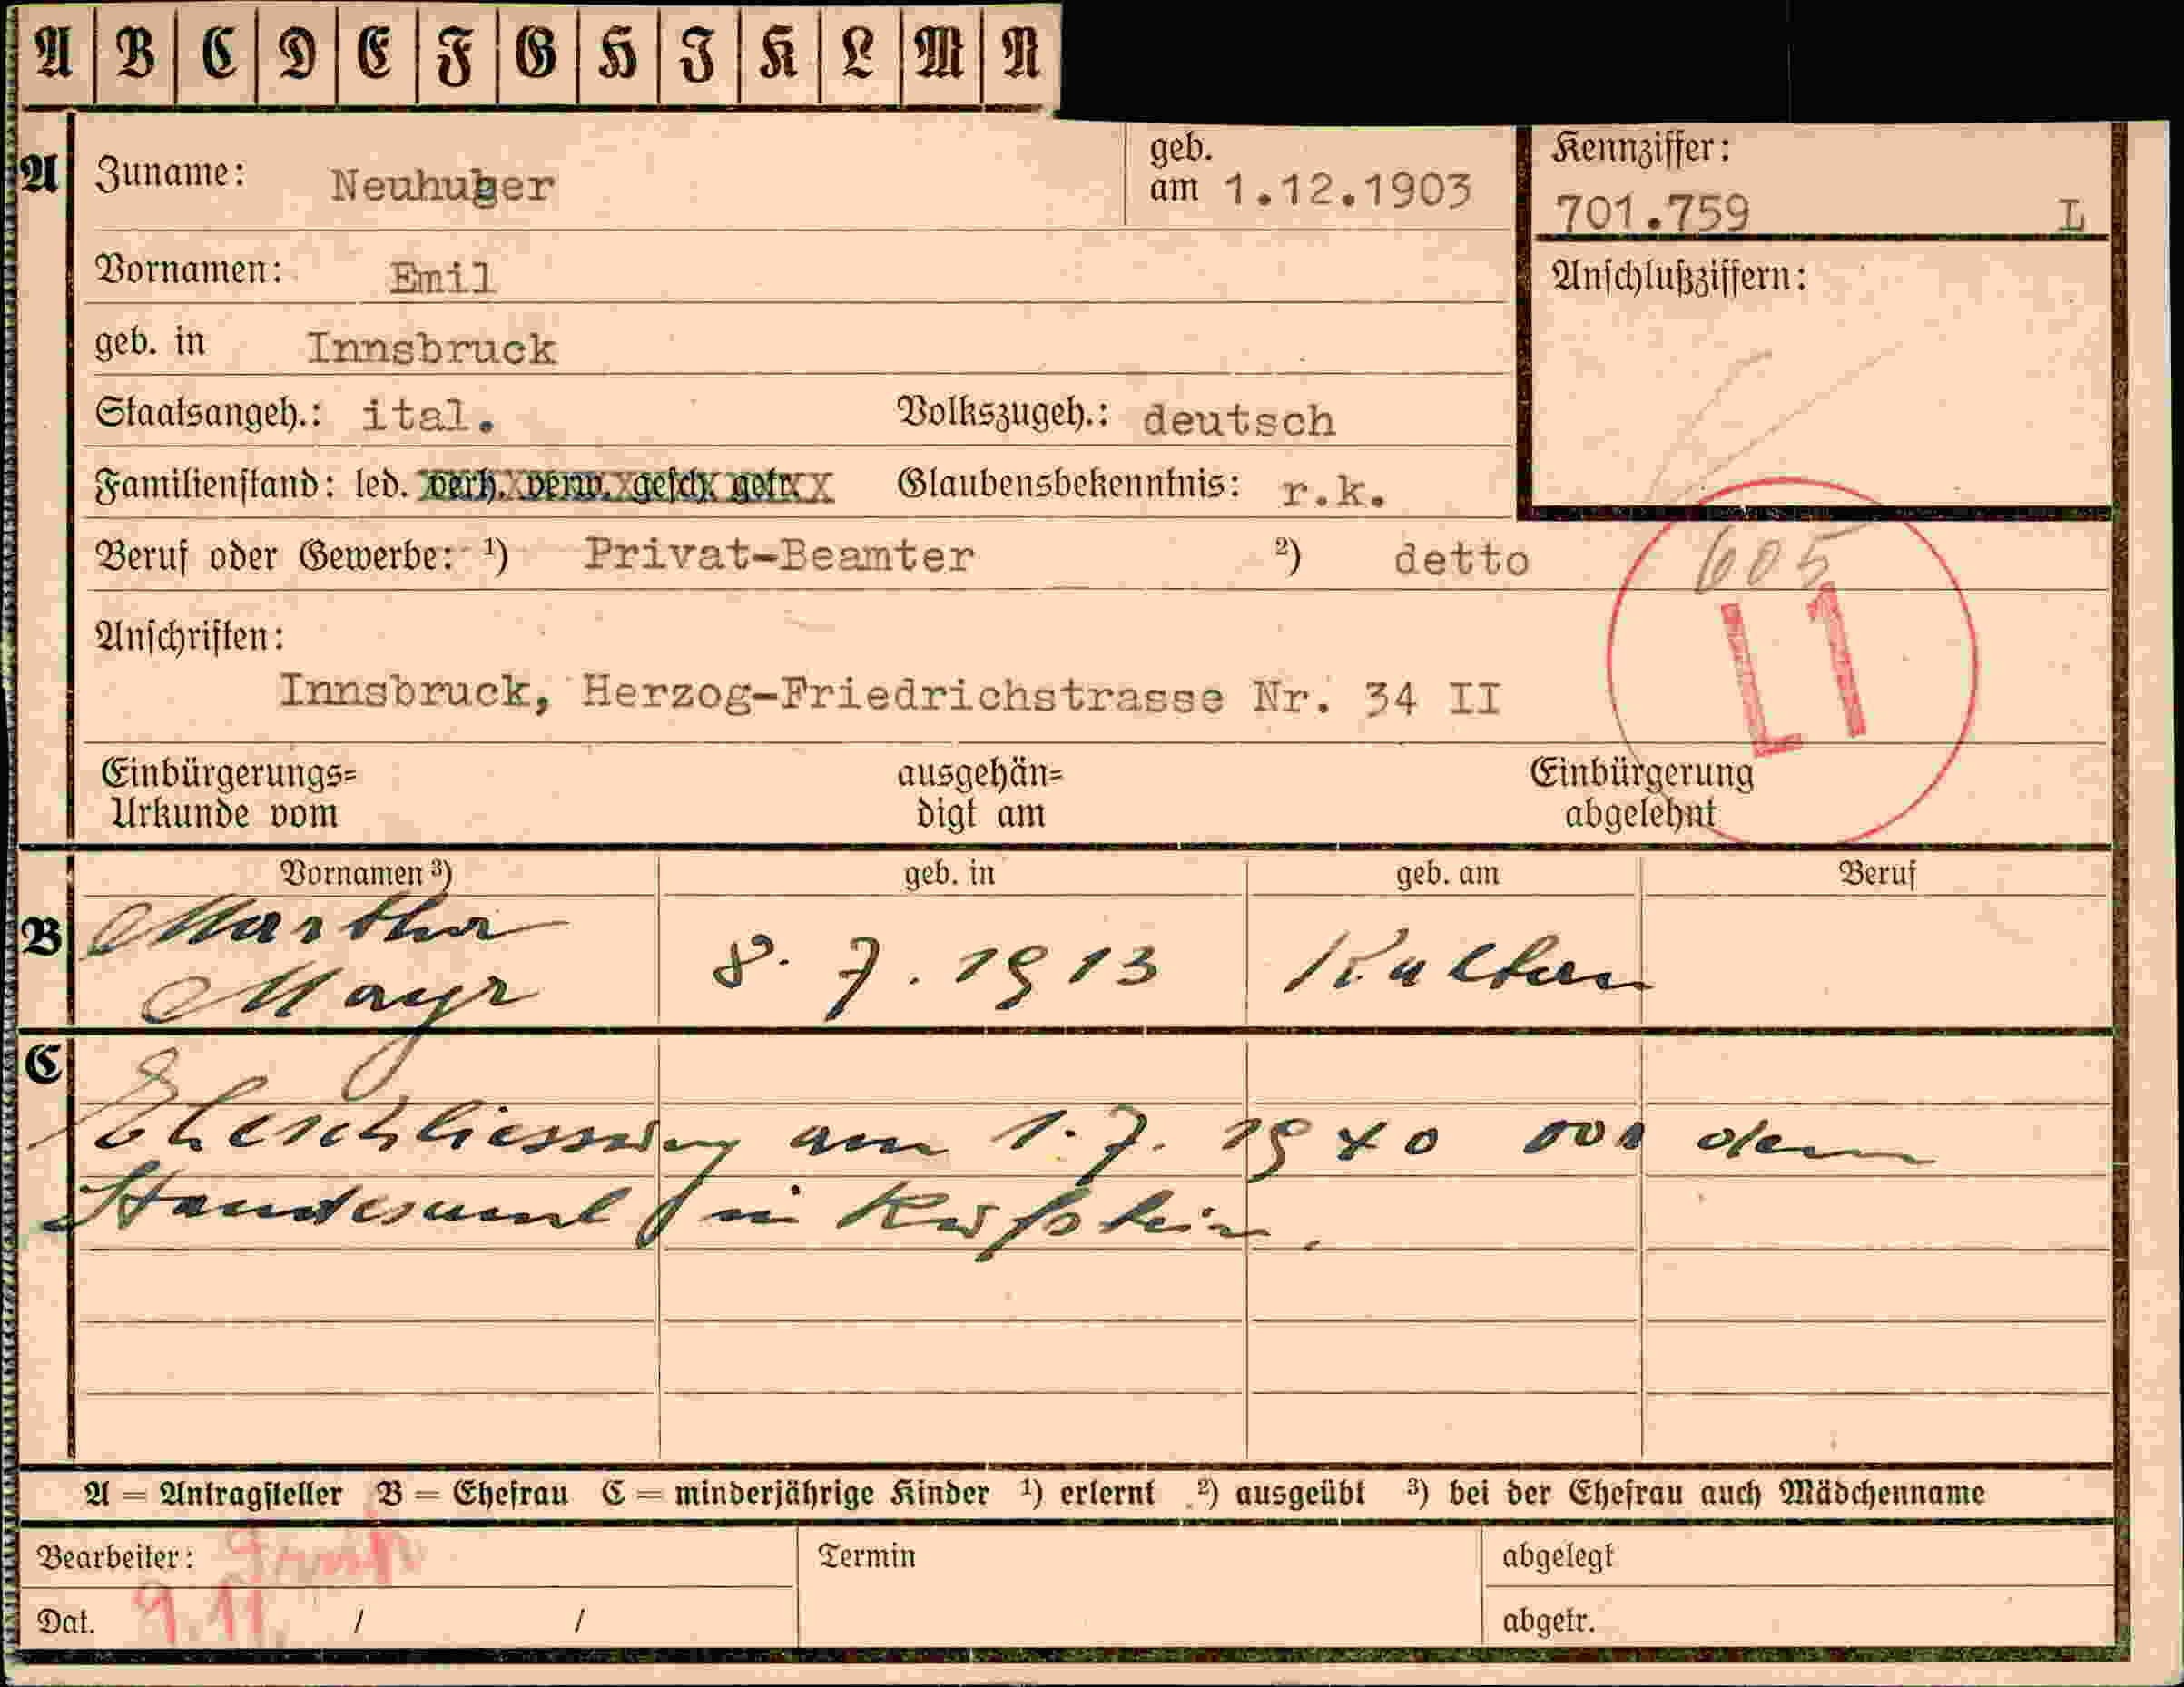 A B C D E F G H I K L M N
A Zuname: Neuhuber geb. am 1.12.1903
Kennziffer: 701.759 L
Vornamen: Emil
Anschlußziffern:
geb. in Innsbruck
Staatsangeh.: ital. Volkszugeh.: deutsch
Familienstand: led. verh. verw. gesch. getr. Glaubensbekenntnis: r.k.
Beruf oder Gewerbe: ¹) Privat-Beamter ²) detto
605
L1
Anschriften:
Innsbruck, Herzog-Friedrichstrasse Nr. 34 II
Einbürgerungs= ausgehän= Einbürgerung
Urkunde vom digt am abgelehnt
Vornamen ³) geb. in geb. am Beruf
B Martha
Mayr 8. 7. 1913 Kaltern
C
Eheschliessung am 1. 7. 1940 vor dem
Standesamt in Kufstein.
A = Antragsteller B = Ehefrau C = minderjährige Kinder ¹) erlernt ²) ausgeübt ³) bei der Ehefrau auch Mädchenname
Bearbeiter: Termin abgelegt
Dat. 9.11. / / abgetr.